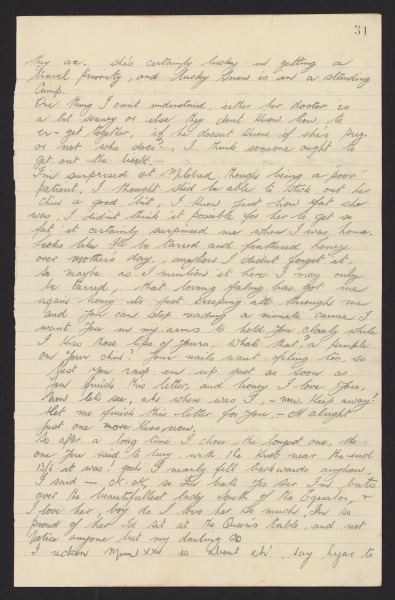 31
they are. she's certainly lucky in getting a
travel priority, and lucky Snow is in a standing
Camp.
One thing I can't understand, either her doctor is
a bit screwy or else they don't know how to
er - get together, if he doesn't know if she's preg.
or not who does?, I think someone ought to
get out the book.
I'm surprised at Mildred though being a poor
patient, I thought she'd be able to stick out her
chin a good bit, I know just how fat she
was, I didn't think it possible for her to get so
fat it certainly surprised me when I was home.
Looks like I'll be tarred and feathered honey
over mother's day, anyhow I didn't forget it,
So maybe as I mention it here I may only
be tarred, that loving feeling has got me
again honey its just creeping all through me
and you can stop reading a minute 'cause I
want you in my arms to hold you closely while
I kiss those lips of yours, whats that? a pimple
on your chin! your nails want filing too, so
just you rasp em up just as soon as
you finish this letter, and honey I love you,
Now lets see, ah where was I, - now, keep away!
let me finish this letter for you, - oh alright
just one more kiss, now.
So after a long time I chose the longest one, the
one you said to buy with the knob near the end
13/6 it was! gosh I nearly fell backwards anyhow,
I said - ok. ok, so I'm bats yes sir I'm bats
over the beautifullest lady South of the Equator, +
I love her, boy do I love her so much, I'm so
proud of her I'd sit at the Queen's table and not
notice anyone but my darling
I reckon Mum xxx is about eh! say hyas to